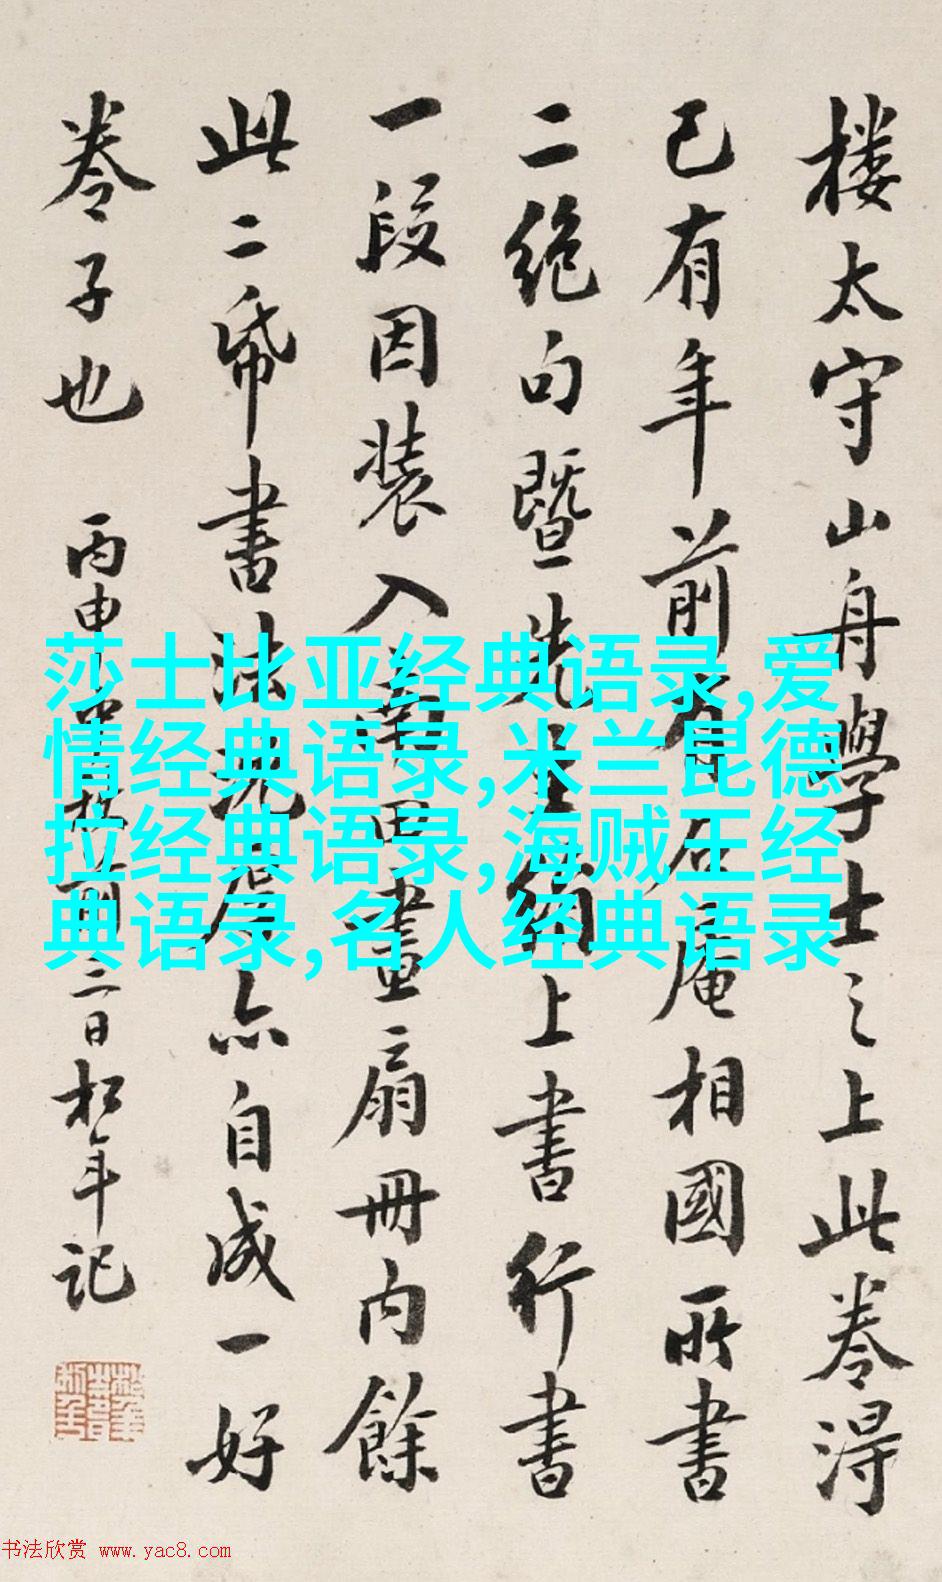 楼太守山舟學士之上此卷得
已有年前有石庵相國所書
二绝句暨先生绢上書行書
一段因装入莘田畫扇冊内餘
此二帋書法
亦自成一好
卷子也
丙申
三日松年記
莎士比亚经典语录,爱
情经典语录,米兰昆德
拉经典语录,海贼王经
典语录,名人经典语录
书法欣赏 www.yac8.com